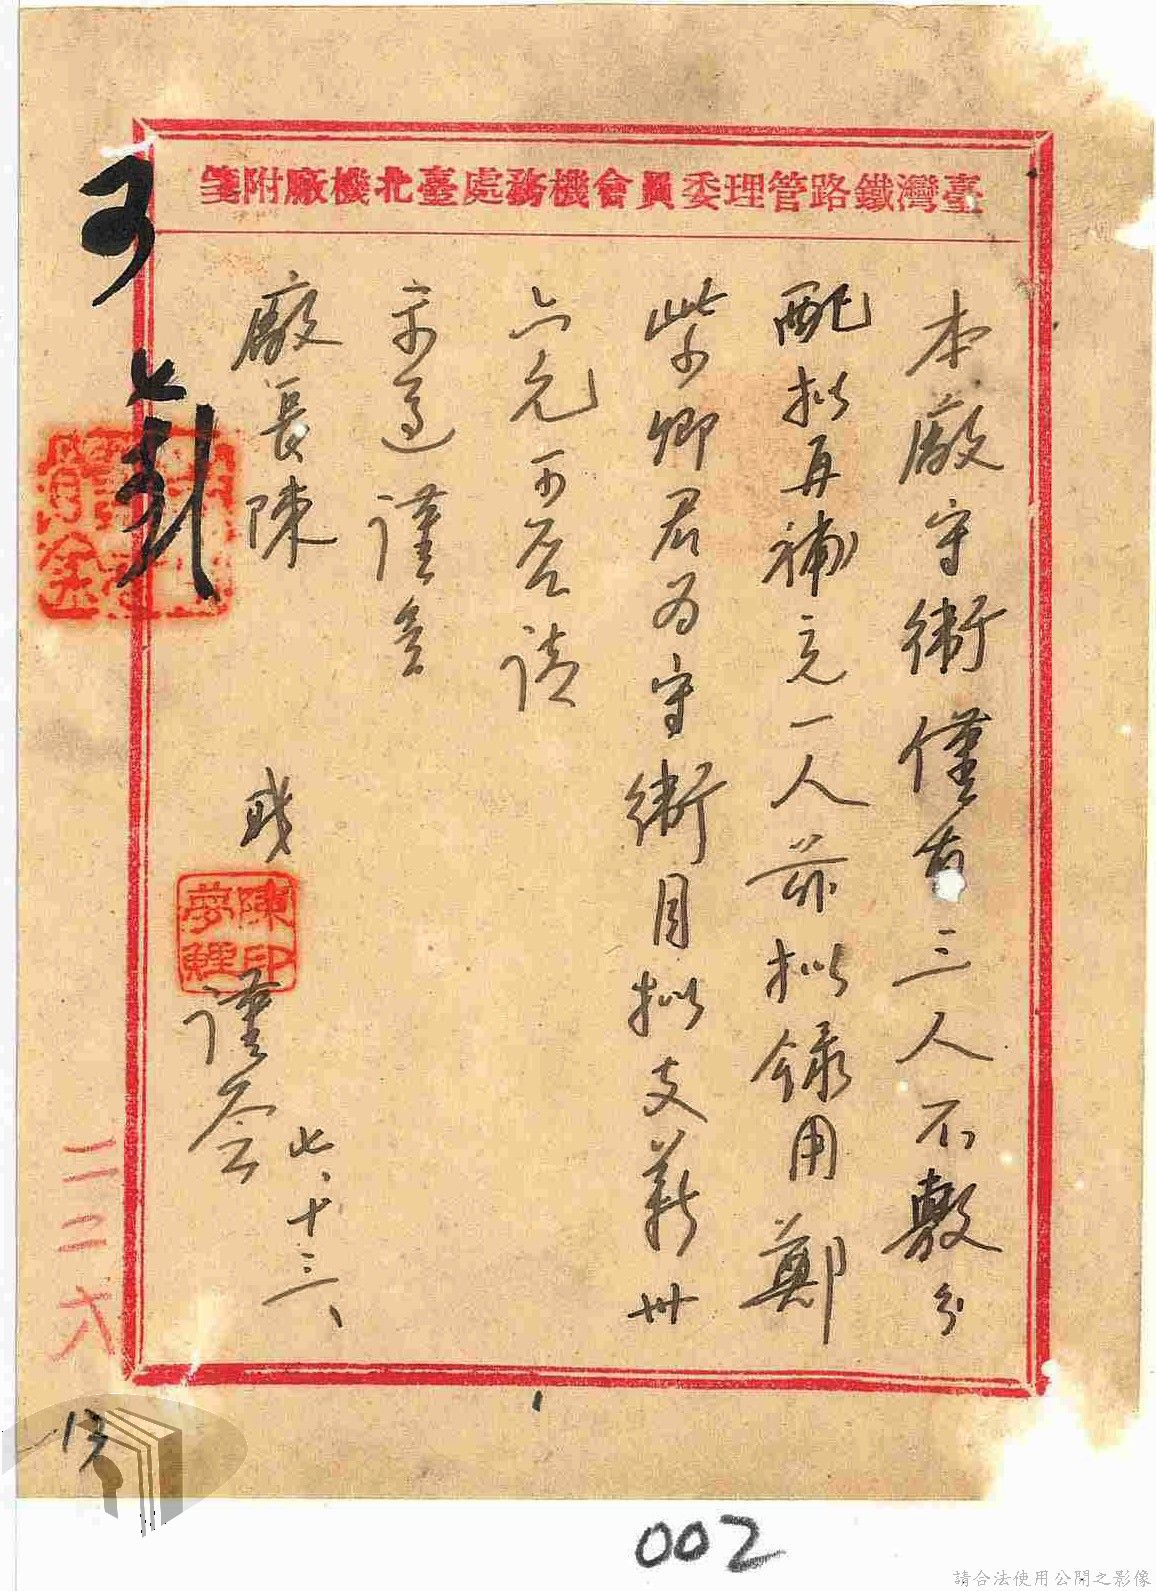 臺灣鐵路管理委員會機務處臺北機廠附箋
本廠守衛僅有三人不敷分
配擬再補充一人茲擬錄用鄭
紫卿君為守衛月擬支薪卅
六元可否請
示遵謹簽
廠長陳
職
陳印夢鯉
謹簽
七、十三、
可
七
二二六
002
請合法使用公開之影像